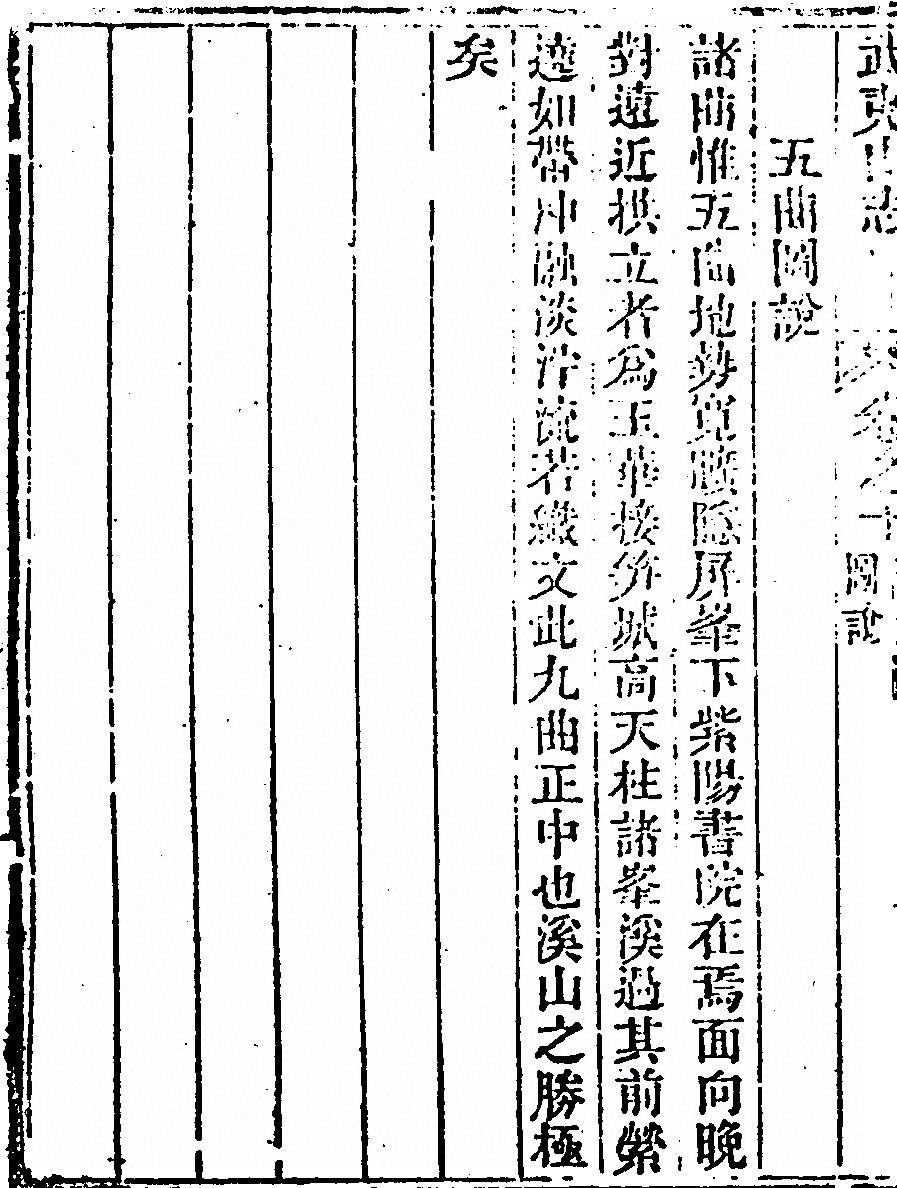 武夷山志
卷之
圖說
五曲圖說
諸曲惟五曲地勢寬曠隱屏峯下紫陽書院在焉面向晚
對遠近拱立者為玉華接笋城高天柱諸峯溪過其前縈
遶如帶沖融淡沲流若縠文此九曲正中也溪山之勝極
矣